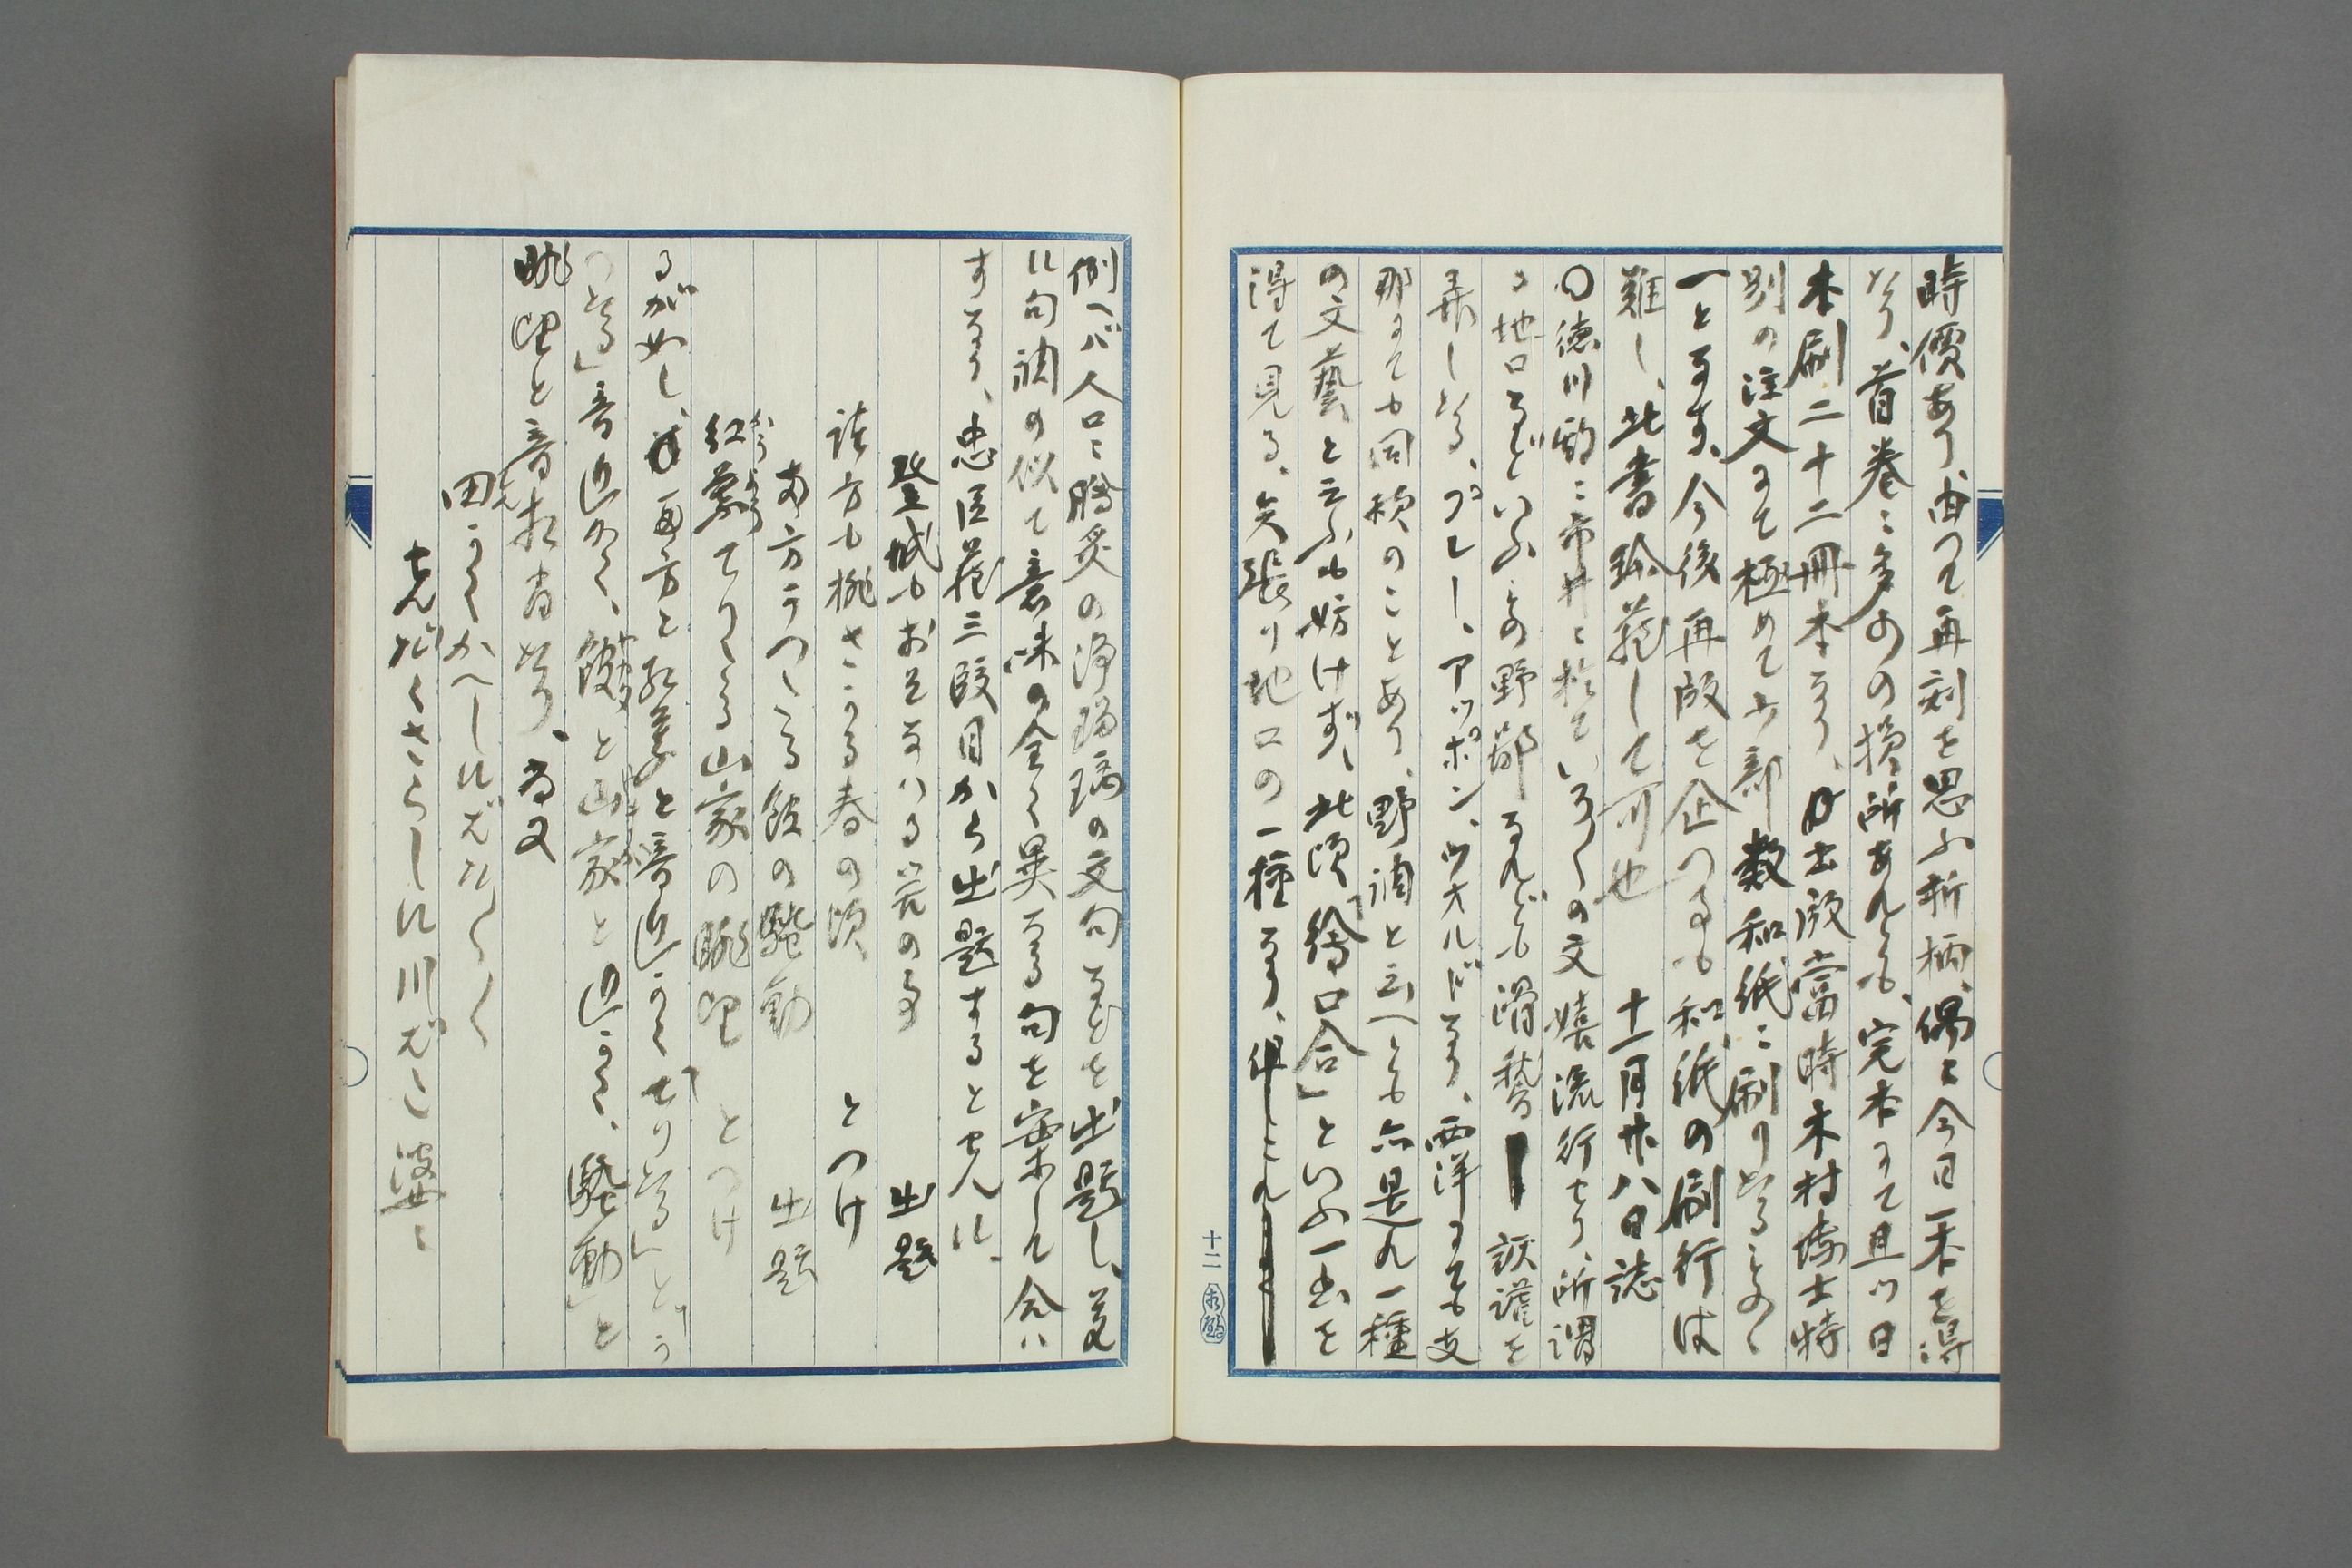 時價あり、由つて再刻を思ふ折柄、偶ニ今日一本を得
たり、首巻ニ多少の損所あれども、完本にて且ツ日
本刷二十二冊本なり、出版當時木村博士特
別の注文にて極めて少部数和紙ニ刷りたるものゝ
一とます、今後再版を企つるも和紙の刷行は
難し、此書珍蔵して可也 十一月廿八日誌
〇徳川期ニ市井ニ於ていろ〳〵の文嬉流行せり、所謂
る地口などいふもの野鄙なれども滑稽 諧謔を
弄したる、プレー、アッポン、ウオルドなり、西洋にても支
那にても同様のことあり、野調と云へども亦是れ一種
の文藝と云ふも妨けず、此頃「繪口合」といふ一書を
得て見る、矢張り地口の一種なり、
例へバ人口ニ膾炙の浄瑠璃の文句などを出題し、夫
に句調の似て意味の全く異なる句を案して合ハ
するなり、忠臣蔵三段目から出題すると先に、
登城もおそなハる 出題
諸方も桃さかる春の頃 とつけ
あ方うつゝる館の騒動 出題
紅葉てりくる山家の眺望 とつけ
るが如し、両方と紅葉と音近かく「せりたる」と「う
つたる」音近かく、館と山家と近かく、騒動」と
眺望と音相近なり、為又
田うくかへしれバ〳〵〳〵
せんだくさらしに川ばゝ婆ゝ
十二